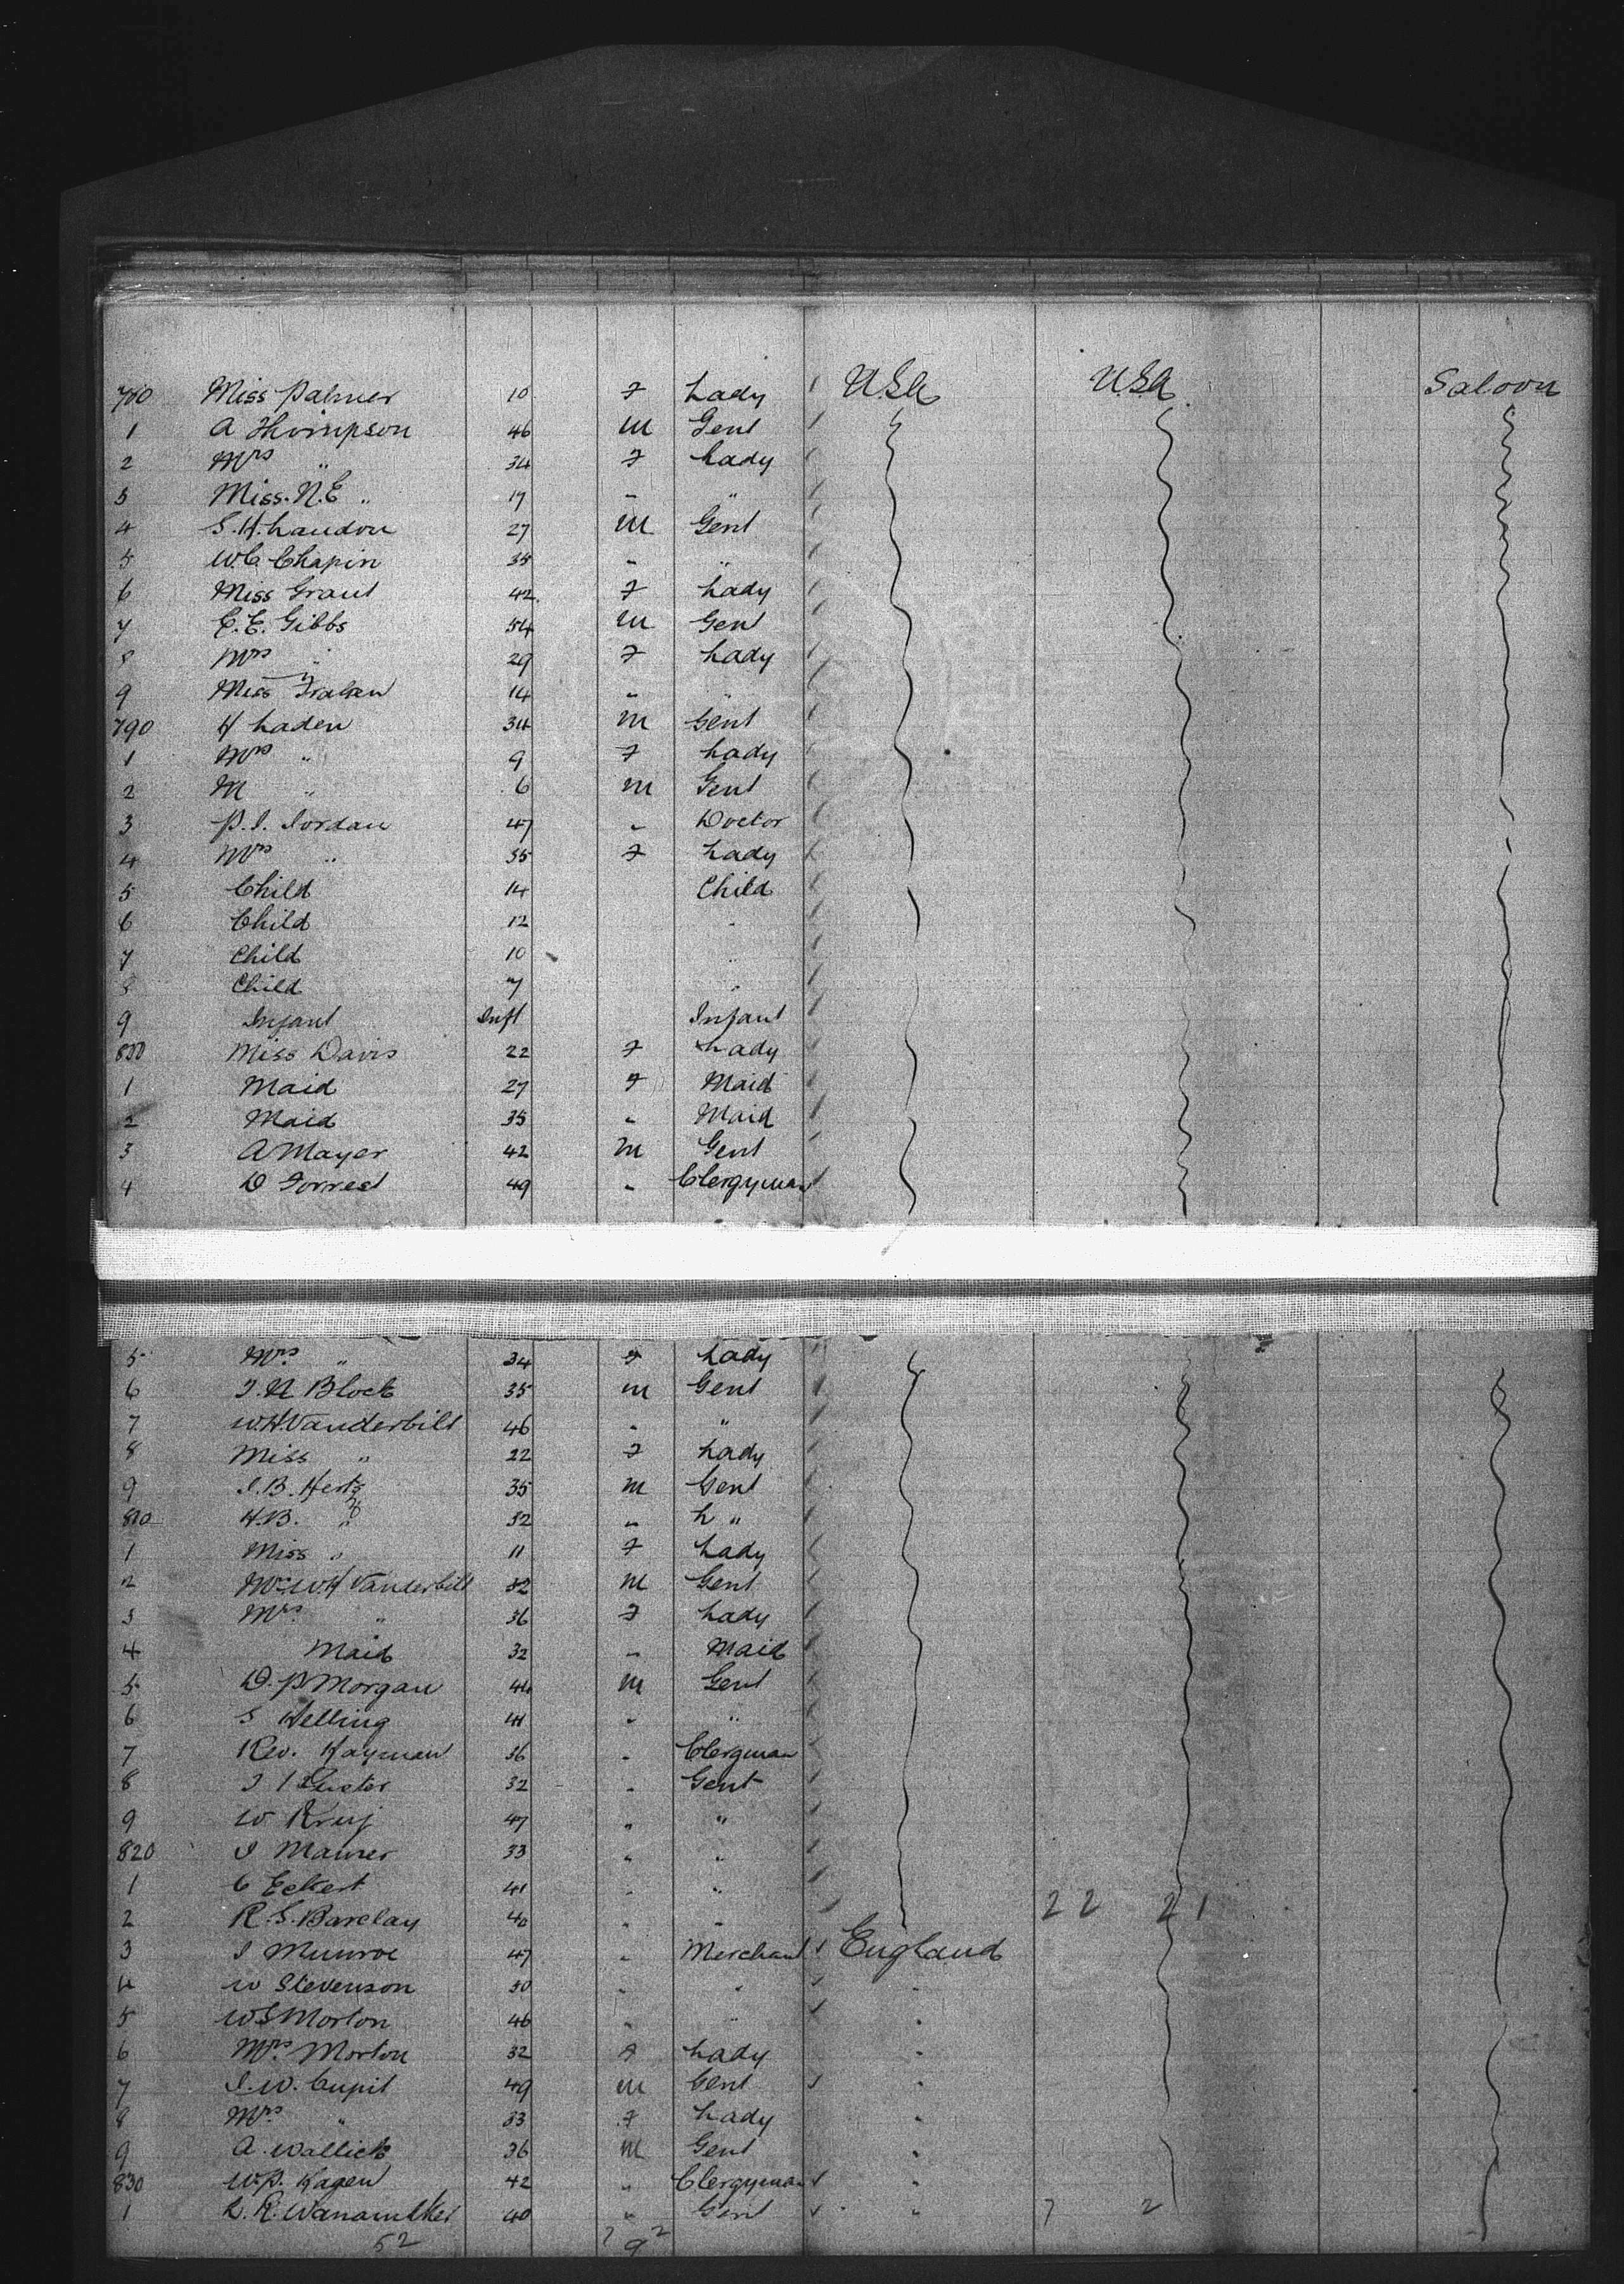 780 Miss Palmer 10 F Lady USA USA Saloon
1 A Thompson 46 M Gent
2 Mrs " 34 F Lady
3 Miss. N.E " 17 " "
4 S. H. Landon 27 M Gent
5 W.C. Chapin 35 " "
6 Miss Grant 42 F Lady
7 E. E. Gibbs 54 M Gent
8 Mrs " 29 F Lady
9 Miss 14 " "
790 H Laden 34 M Gent
1 Mrs " 9 F Lady
2 M " 6 M Gent
3 P. J. Jordan 47 " Doctor
4 Mrs " 35 F Lady
5 Child 14 Child
6 Child 12 "
7 Child 10 "
8 Child 7 "
9 Infant Inft Infant
800 Miss Davis 22 F Lady
1 Maid 27 F Maid
2 Maid 35 " Maid
3 A Mayer 42 M Gent
4 D Forrest 49 " Clergyman
5 Mrs " 34 F Lady
6 J. N Block 35 M Gent
7 W.H. Vanderbilt 46 " "
8 Miss " 22 F Lady
9 I. B. Hertz 35 M Gent
810 H.B. " 32 " L "
1 Miss " 11 F Lady
2 Mr. W. H Vanderbilt 32 M Gent
3 Mrs. " 36 F Lady
4 Maid 32 " Maid
5 D. P Morgan 44 M Gent
6 S Helling 41 " "
7 Rev. Hayman 36 " Clergman
8 32 " Gent
9 W 47 " "
820 J Maurer 33 " "
1 C Eckert 41 " "
2 R. S. Barclay 40 " " 22 21
3 J Munroe 47 " Merchant England
4 W Stevenson 30 " " "
5 W S Morton 46 " " "
6 Mrs. Morton 32 F Lady "
7 J. W. Cupit 49 M Gent "
8 Mrs. " 33 F Lady "
9 A. Wallick 36 M Gent "
830 W. P. Hagen 42 " Clergyman "
1 L. R. Wanamaker 40 " Gent " 7 2
52 92